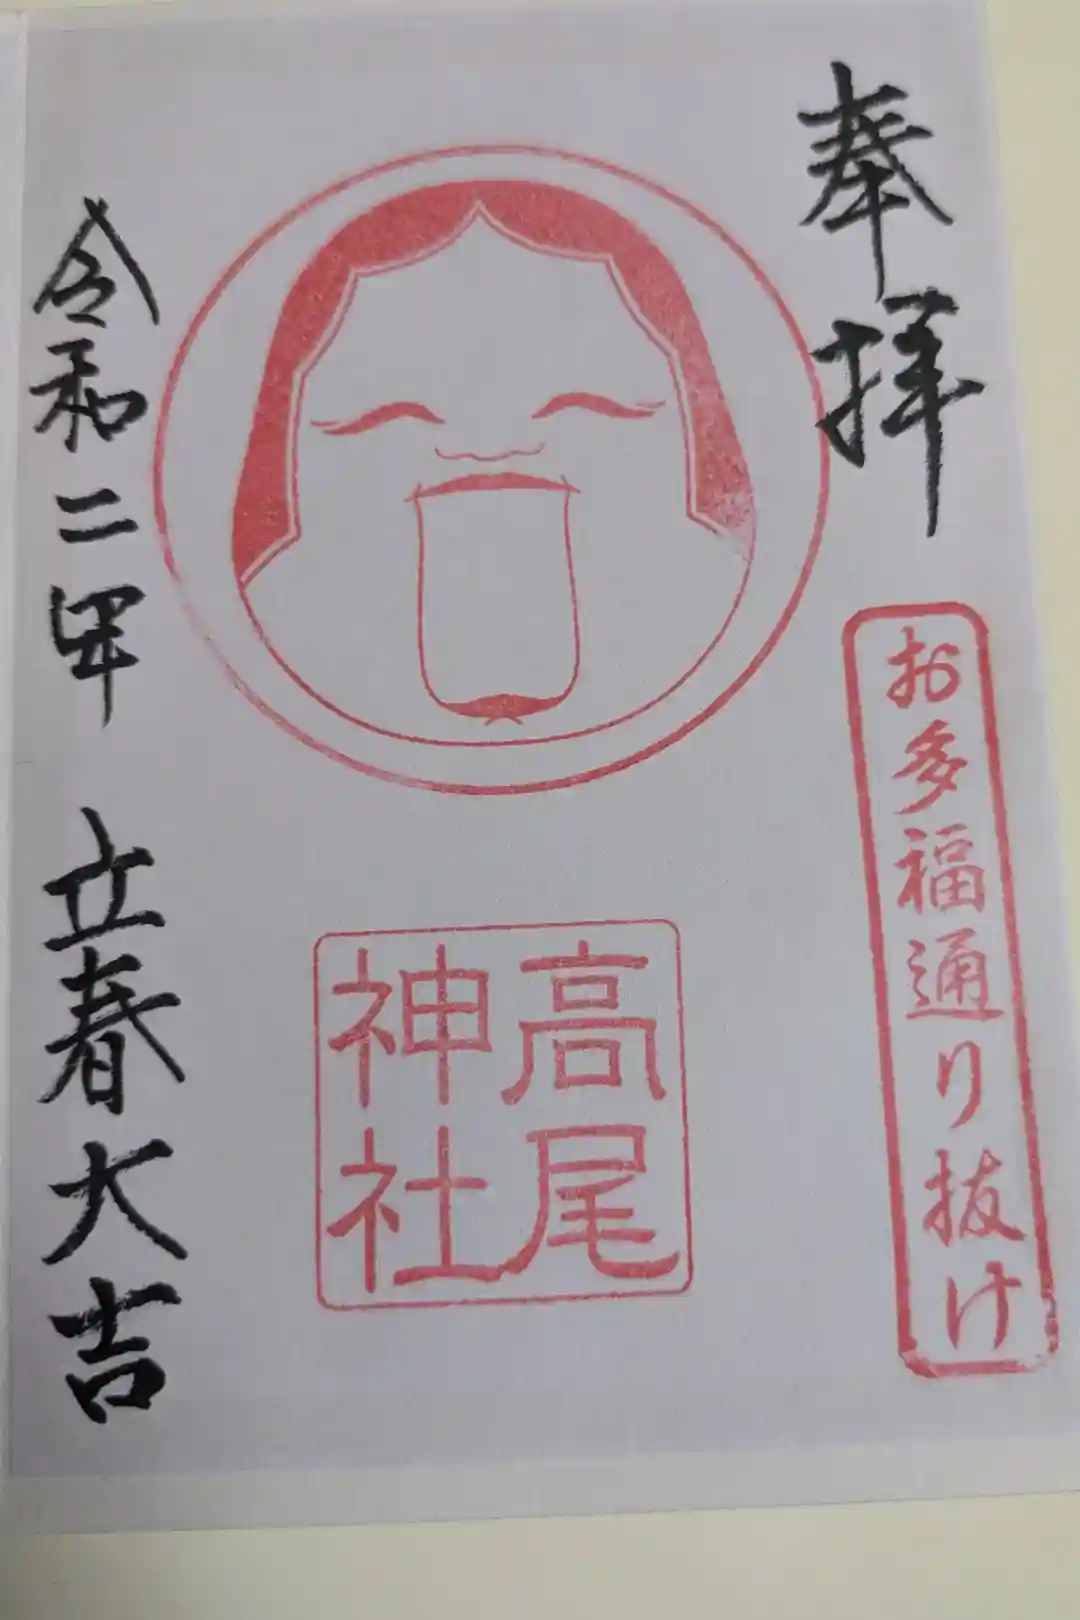 奉拝
お多福通り抜け
高尾
神社
令和二年 立春大吉